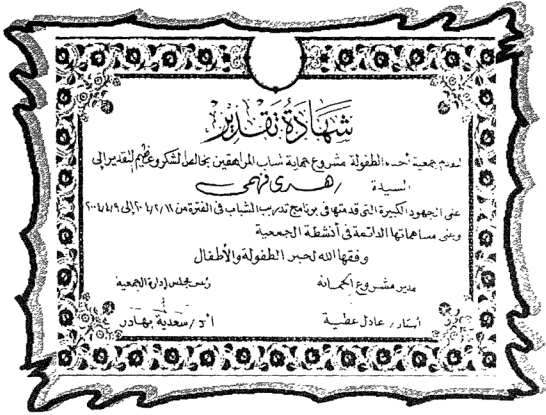 شهادة تقدير
تقدم جمعية أحباء الطفولة مشروع حماية شباب المراهقين بخالص الشكر وعظيم التقدير إلى
السيدة / هدى فهمى
على الجهود الكبيرة التى قدمتها فى برنامج تدريب الشباب فى الفترة من
وعلى مساهماتها الدائمة فى أنشطة الجمعية
وفقها الله لخير الطفولة والأطفال
رئيس مجلس إدارة الجمعية
مدير مشروع الحماية
أ.د / سعدية بهادر
أستاذ / عادل عطية